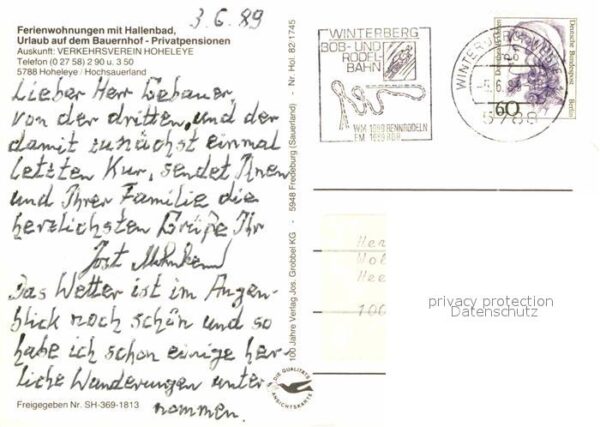 3.6.89
Ferienwohnungen mit Hallenbad,
Urlaub auf dem Bauernhof - Privatpensionen
Auskunft: VERKEHRSVEREIN HOHELEYE
Telefon (0 27 58) 2 90 u. 3 50
5788 Hoheleye / Hochsauerland
Lieber Herr Gebauer,
von der dritten, und der
damit zunächst einmal
letzten Kur, sendet Ihnen
und Ihrer Familie die
herzlichsten Grüße Ihr
Jost
Das Wetter ist im Augen-
blick noch schön und so
habe ich schon einige herr-
liche Wanderungen unter-
nommen.
Freigegeben Nr. SH-369-1813
100 Jahre Verlag Jos. Grobbel KG · 5948 Fredeburg (Sauerland) · Nr. Hol. 82:1745
DIE QUALITÄTS
ANSICHTSKARTE
WINTERBERG
BOB- UND
RODEL
BAHN
WM 1989 RENNRODELN
EM 1989 BOB
WINTERBERG
-5.6.89
5788
Deutsche Bundespost
Berlin
60
100
privacy protection
Datenschutz